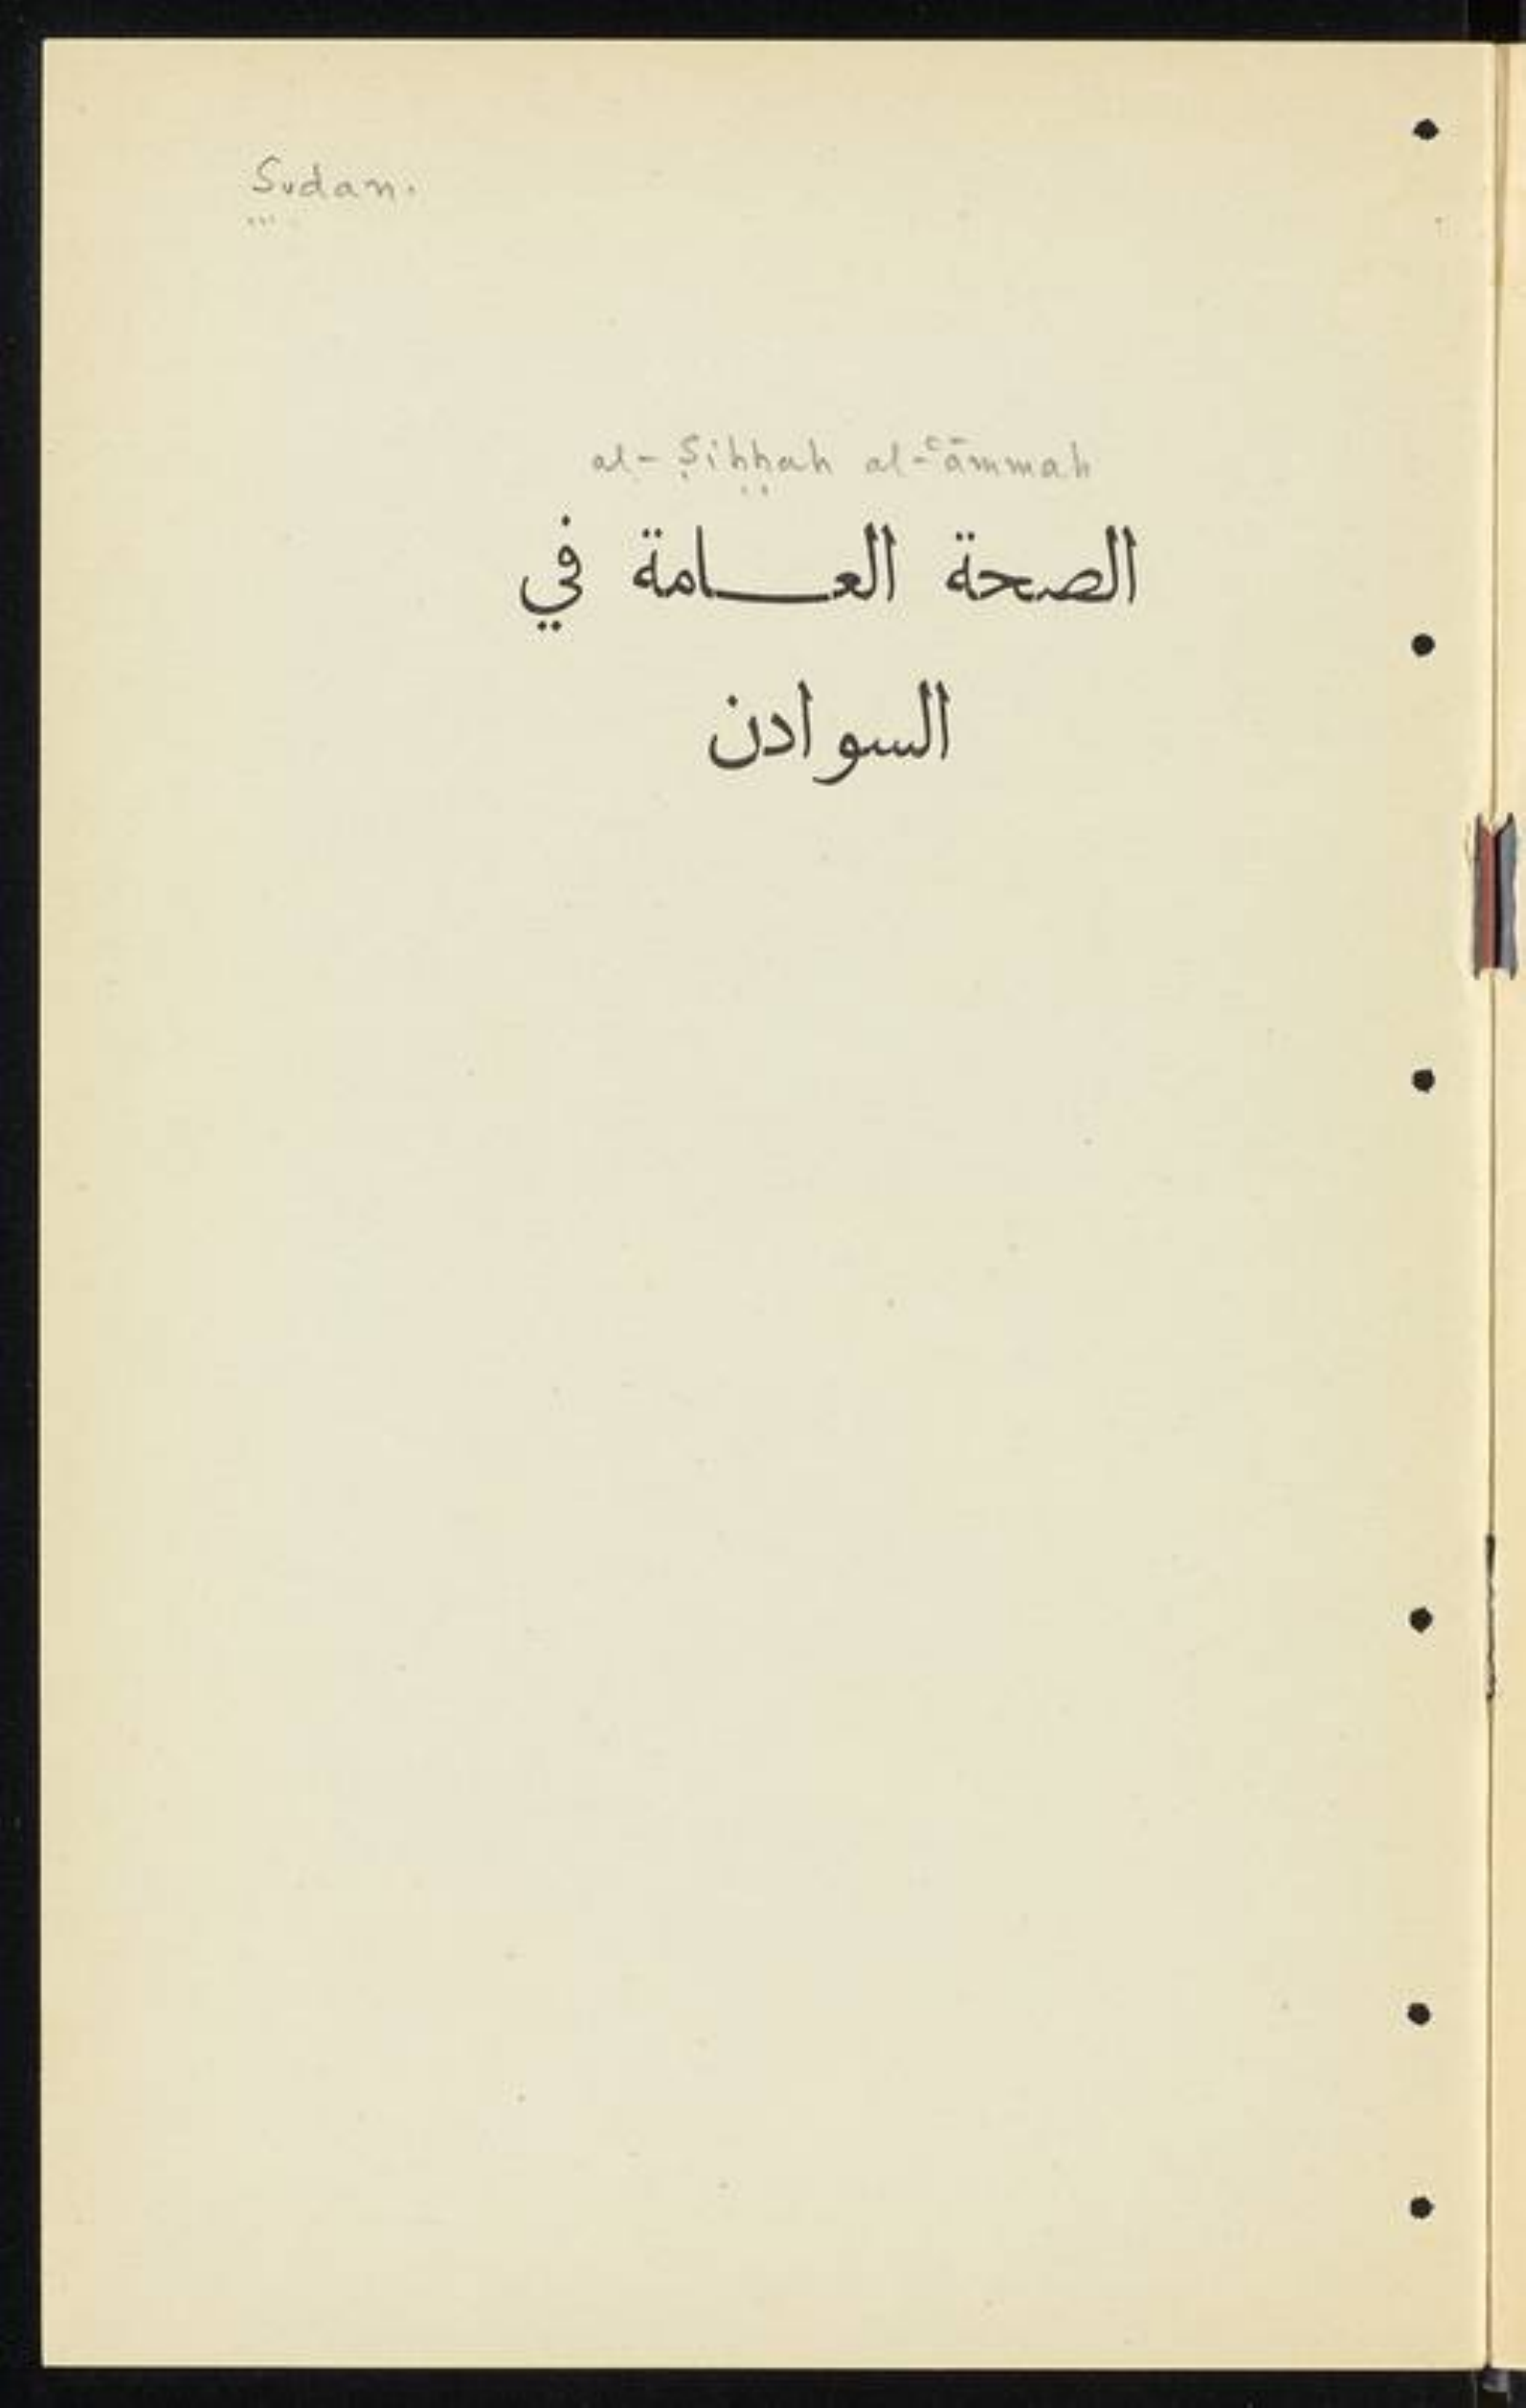 Sudan.
al-Ṣiḥḥah al-ʿāmmah
الصحة العـــامة في
السوادن